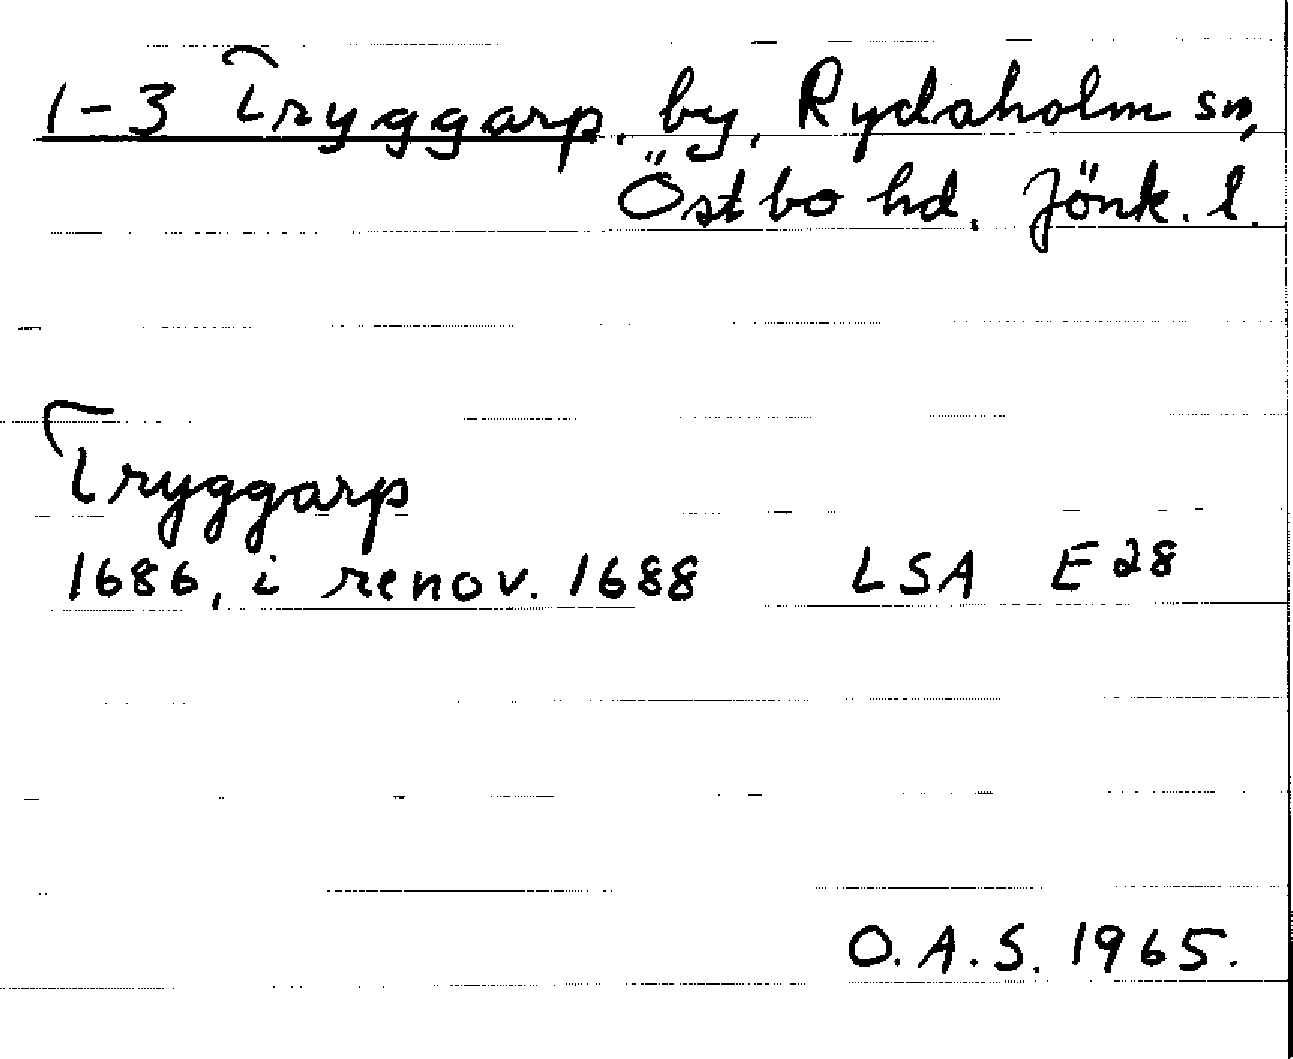 1-3 Tryggarp, by, Rydaholm sn,
Östbo hd. Jönk. l.
Tryggarp
1686, i renov. 1688 LSA E 28
O.A.S. 1965.